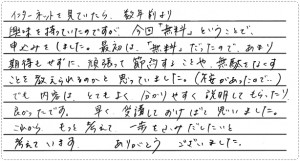 インターネットを見ていたら、数年前より
興味を持っていたのですが、今回『無料』ということで、
申込みをしました。最初は、『無料』だったので、あまり
期待もせずに、頑張って節約することや、無駄をなくす
ことを教えられるのかと思っていました。(不安があったので…)
でも内容は、とてもよく、分かりやすく説明してもらったり、
良かったです。早く、受講しておけばと思いました。
これから、もっと考えて一歩をふみだしたいと
考えています。ありがとうございました。